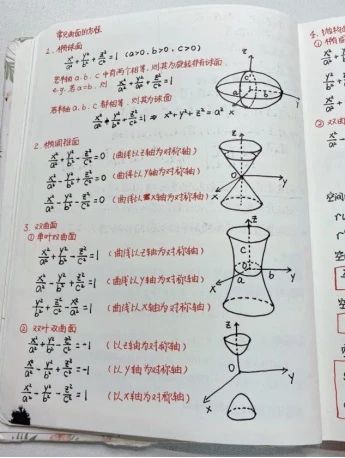 常见曲面的方程
1. 椭球面
x²/a² + y²/b² + z²/c² = 1 (a>0. b>0, c>0)
若半轴 a. b. c 中有两个相等, 则其为旋转椭球面.
e.g. 若 a=b. 则 x²/a² + y²/a² + z²/c² = 1
若半轴 a. b. c 都相等, 则其为球面
x²/a² + y²/a² + z²/a² = 1 ⇒ x²+y²+z² = a²
z
c
a
b
y
x
2. 椭圆锥面
x²/a² + y²/b² - z²/c² = 0 (曲线以z轴为对称轴)
x²/a² - y²/b² + z²/c² = 0 (曲线以y轴为对称轴)
x²/a² - y²/b² - z²/c² = 0 (曲线以x轴为对称轴)
z
O
y
x
3. 双曲面
① 单叶双曲面
x²/a² + y²/b² - z²/c² = 1 (曲线以z轴为对称轴)
x²/a² - y²/b² + z²/c² = 1 (曲线以y轴为对称轴)
y²/b² + z²/c² - x²/a² = 1 (曲线以x轴为对称轴)
z
c
O
a
b
y
x
② 双叶双曲面
x²/a² + y²/b² - z²/c² = -1 (以z轴为对称轴)
x²/a² - y²/b² + z²/c² = -1 (以y轴为对称轴)
x²/a² - y²/b² - z²/c² = 1 (以x轴为对称轴)
z
O
y
x
4.
①
② 双曲
空间
空